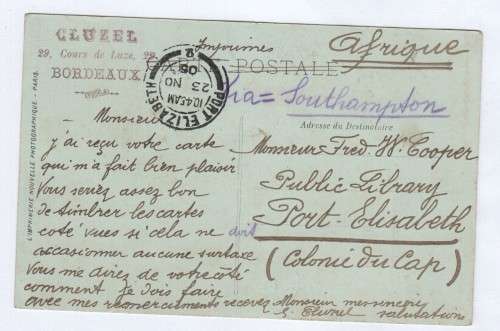 CLUZEL
29, Cours de Luze, 29
BORDEAUX
Imprimés
Afrique
CARTE POSTALE
PORT ELIZABETH
10.45 AM
23 NO
05
2
Via = Southampton
Adresse du Destinataire
Monsieur Fred. W. Cooper
Public Library
Port-Elisabeth
(Colonie du Cap)
Monsieur
j'ai reçu votre carte
qui m'a fait bien plaisir
Vous seriez assez bon
de timbrer les cartes
coté vues si cela ne doit
occasionner aucune surtaxe
Vous me direz de votre côté
comment je dois faire
avec mes remerciements recevez Monsieur mes sincères
salutations
L'IMPRIMERIE NOUVELLE PHOTOGRAPHIQUE - PARIS.